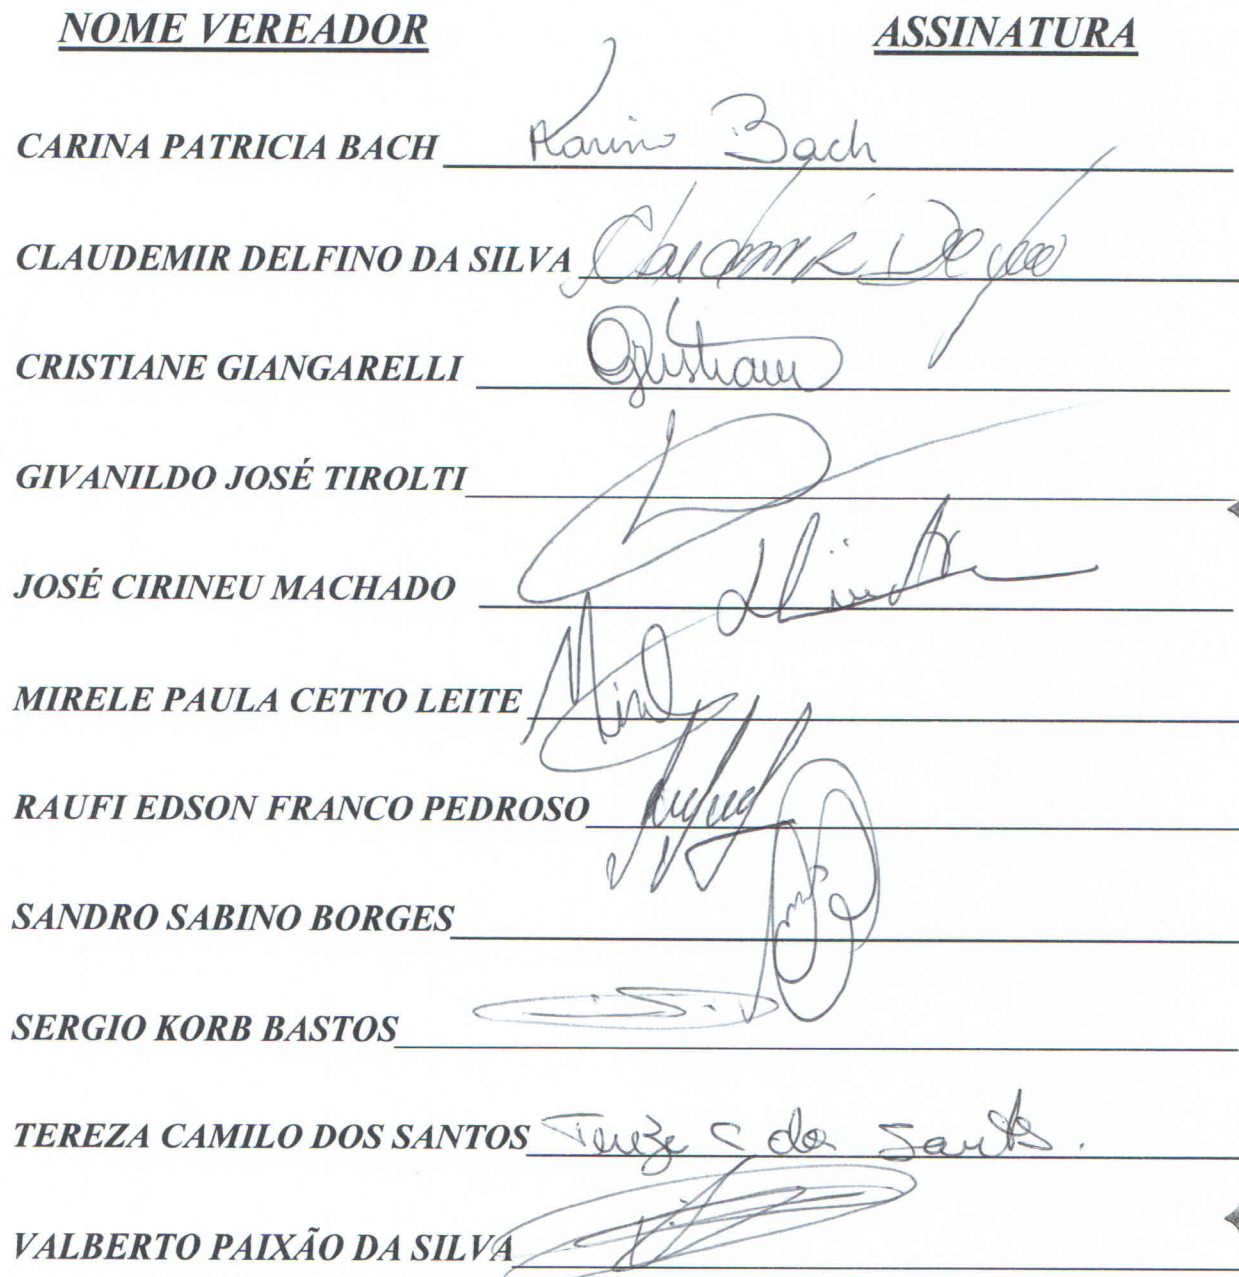 NOME VEREADOR ASSINATURA
CARINA PATRICIA BACH Karina Bach
CLAUDEMIR DELFINO DA SILVA Claudemir
CRISTIANE GIANGARELLI Cristiane
GIVANILDO JOSÉ TIROLTI
JOSÉ CIRINEU MACHADO
MIRELE PAULA CETTO LEITE
RAUFI EDSON FRANCO PEDROSO
SANDRO SABINO BORGES
SERGIO KORB BASTOS
TEREZA CAMILO DOS SANTOS Tereza C dos Santos.
VALBERTO PAIXÃO DA SILVA